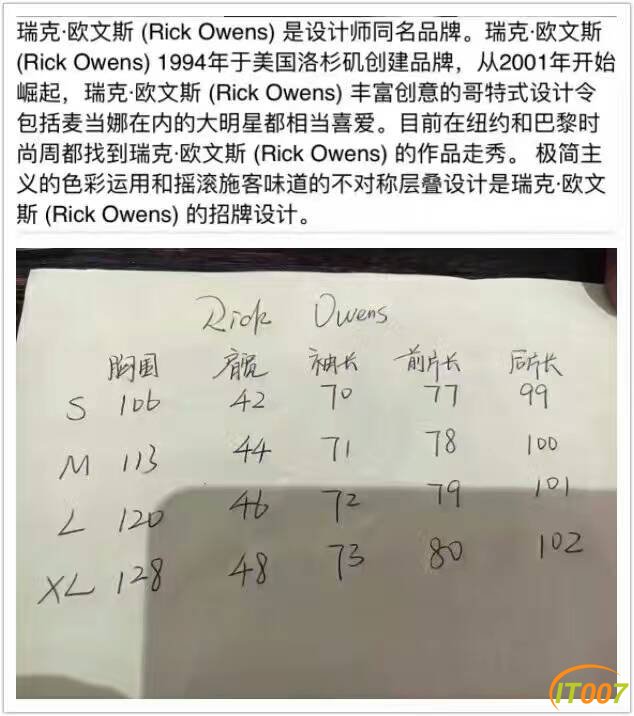 瑞克·欧文斯 (Rick Owens) 是设计师同名品牌。瑞克·欧文斯
(Rick Owens) 1994年于美国洛杉矶创建品牌，从2001年开始
崛起，瑞克·欧文斯 (Rick Owens) 丰富创意的哥特式设计令
包括麦当娜在内的大明星都相当喜爱。目前在纽约和巴黎时
尚周都找到瑞克·欧文斯 (Rick Owens) 的作品走秀。 极简主
义的色彩运用和摇滚施客味道的不对称层叠设计是瑞克·欧文
斯 (Rick Owens) 的招牌设计。
Rick Owens
胸围 肩宽 袖长 前片长 后片长
S 106 42 70 77 99
M 113 44 71 78 100
L 120 46 72 79 101
XL 128 48 73 80 102
IT007